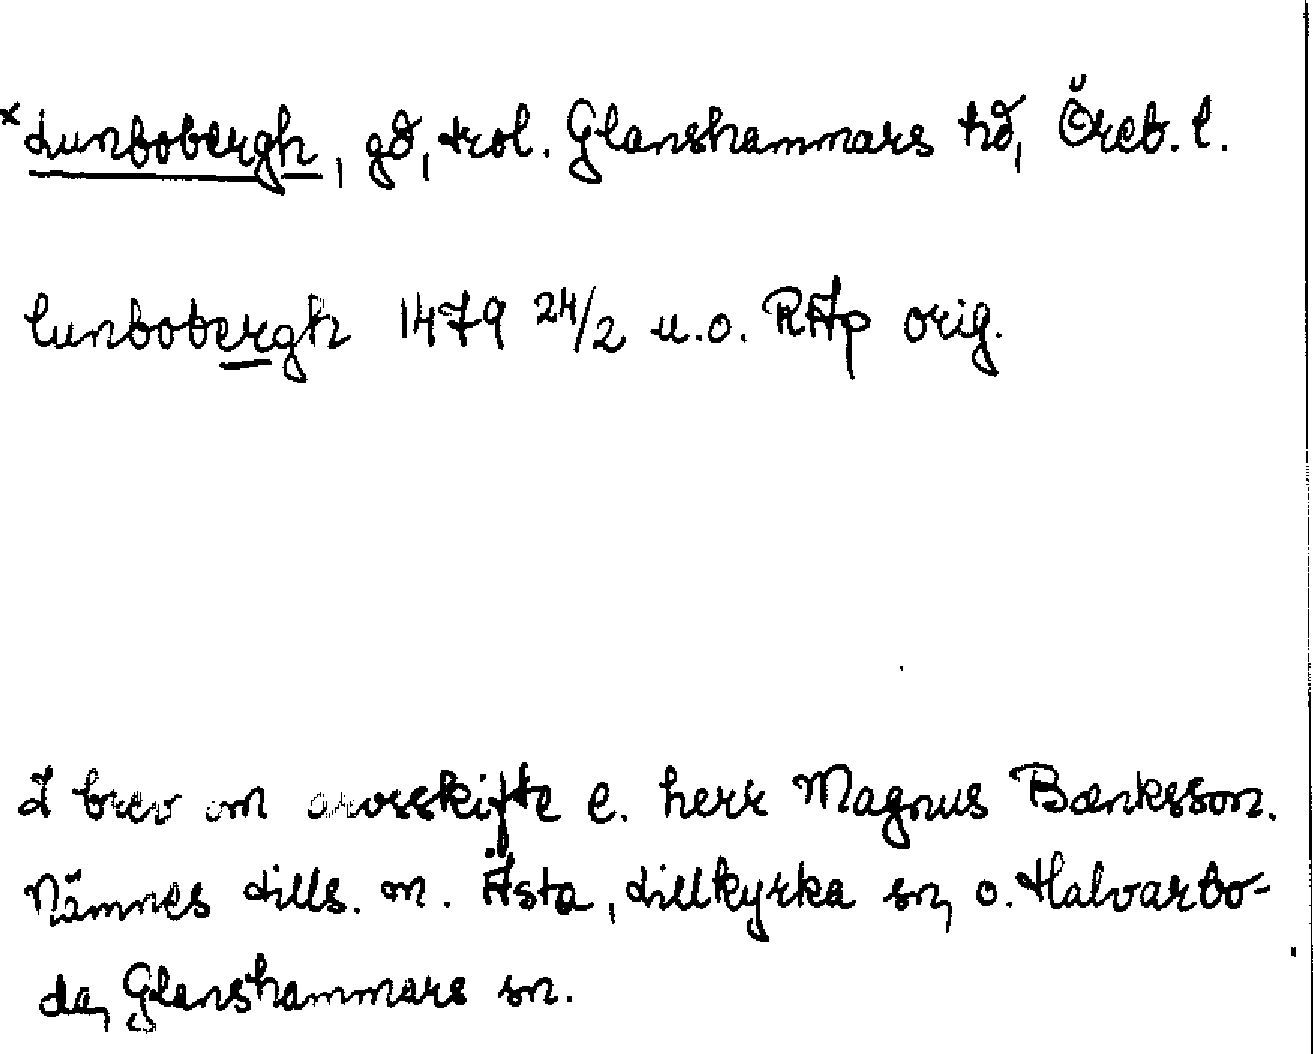 *Lunbobergh, gd, trol. Glanshammars hd, Öreb. l.
lunbobergh 1479 24/2 u.o. RAp orig.
I brev om arvsskifte e. herr Magnus Bænksson.
Nämnes tills. m. Ästa, Lillkyrka sn, o. Halvarbo-
da, Glanshammars sn.